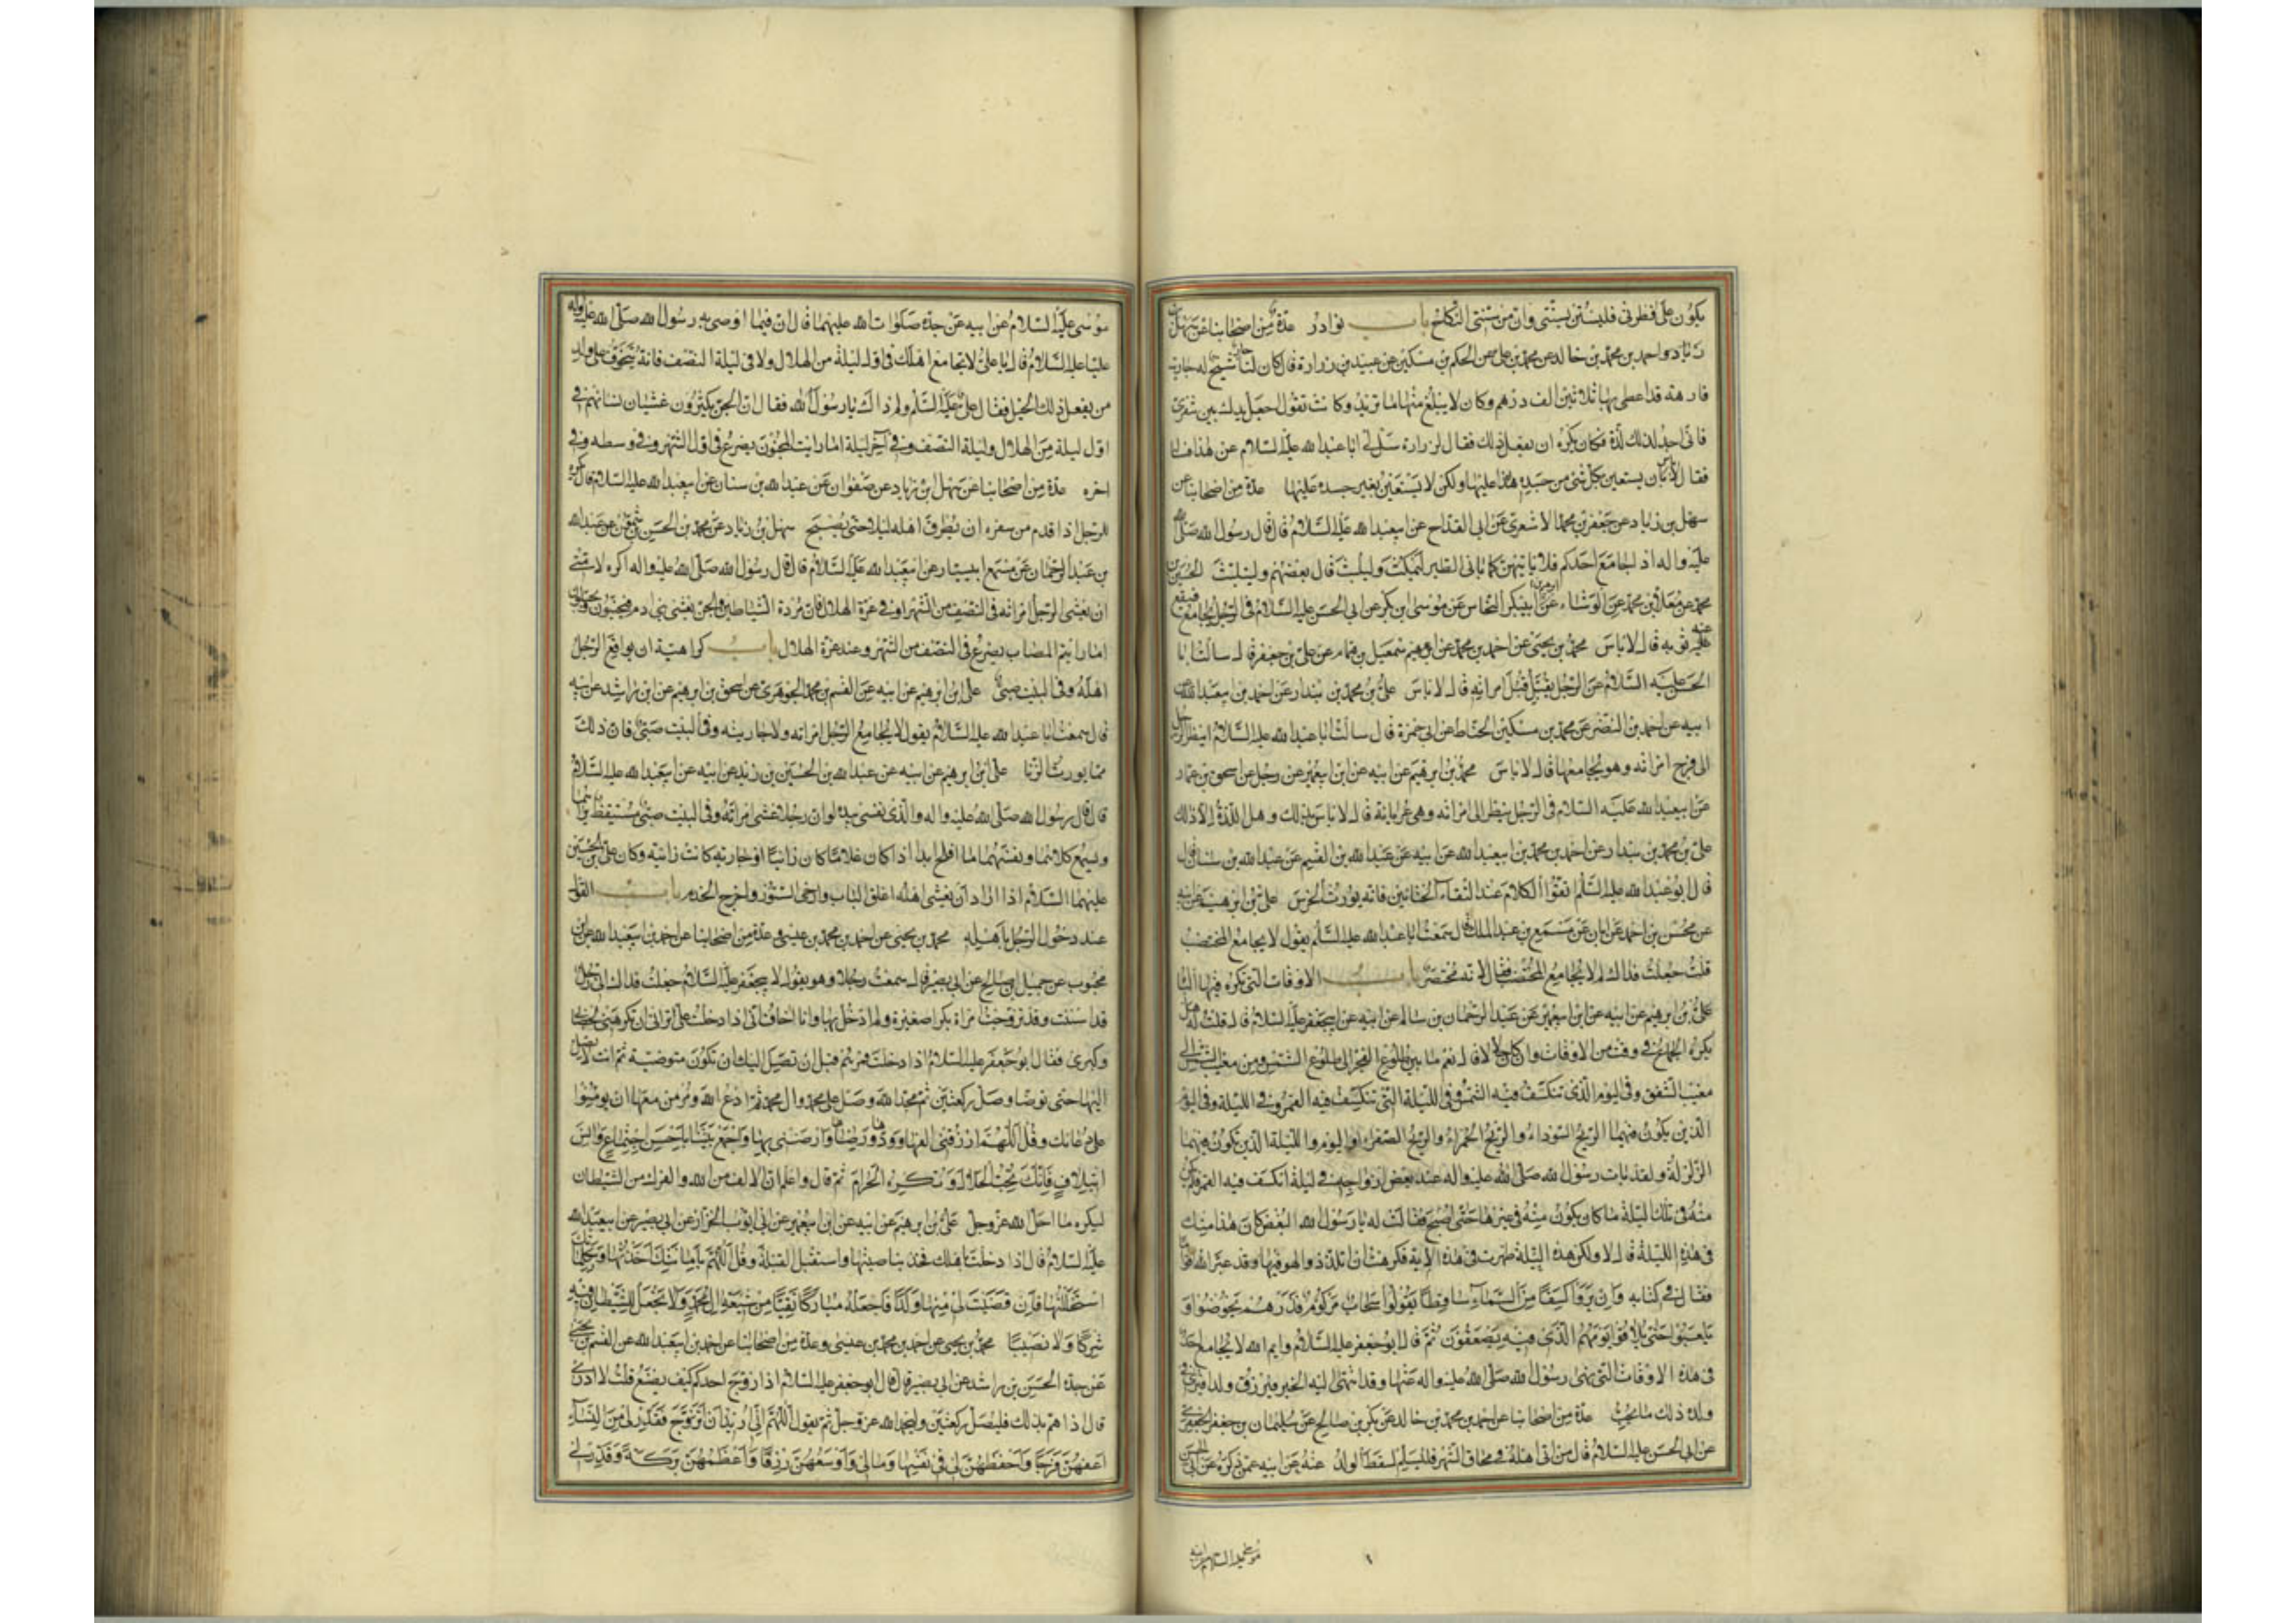 يكون على فطرتي فليستن بسنتي وان من سنتي النكاح باب نوادر عدة من اصحابنا عن سهل بن
زياد واحمد بن محمد بن خالد عن محمد بن علي عن الحكم بن مسكين عن عبيد بن زرارة قال كان لنا جار شيخ له جارية
فارهة قد اعطى بها ثلاثين الف درهم وكان لا يبلغ منها ما تريد وكانت تقول اجعل يدك بين شفري
فاني اجد لذلك لذة فكان يكره ان يفعل ذلك فقال لزرارة سل لي ابا عبد الله عليه السلام عن هذا فسأله
فقال لا باس ان يستعين بكل شئ من جسده عليها ولكن لا يستعين بغير جسده عليها عدة من اصحابنا عن
سهل بن زياد عن جعفر بن محمد الاشعري عن ابن القداح عن ابي عبد الله عليه السلام قال قال رسول الله صلى الله
عليه واله اذا جامع احدكم فلا ياتيهن كما ياتي الطير ليمكث وليلبث قال بعضهم وليتلبث الحسين بن
محمد عن معلى بن محمد عن الوشاء عن ابان عن ابي بكر النحاس عن موسى بن بكر عن ابي الحسن عليه السلام في الرجل يجامع فيقع
عنه ثوبه قال لا باس محمد بن يحيى عن احمد بن محمد عن اسمعيل بن همام عن علي بن جعفر قال سالت ابا
الحسن عليه السلام عن الرجل يقبل قبل امراته قال لا باس علي بن محمد بن بندار عن احمد بن ابي عبد الله عن
ابيه عن احمد بن النضر عن محمد بن مسكين الحناط عن ابي حمزة قال سالت ابا عبد الله عليه السلام اينظر الرجل
الى فرج امراته وهو يجامعها قال لا باس علي بن ابرهيم عن ابيه عن ابن ابي عمير عن رجل عن اسحق بن عمار
عن ابي عبد الله عليه السلام في الرجل ينظر الى امراته وهي عريانة قال لا باس بذلك وهل اللذة الا ذلك
علي بن محمد بن بندار عن احمد بن محمد بن ابي عبد الله عن ابيه عن عبد الله بن القسم عن عبد الله بن سنان قال
قال ابو عبد الله عليه السلام اتقوا الكلام عند التقاء الختانين فانه يورث الخرس علي بن ابرهيم عن ابيه
عن محسن بن احمد عن ابان عن مسمع بن عبد الملك قال سمعت ابا عبد الله عليه السلام يقول لا يجامع المختضب
قلت جعلت فداك لم لا يجامع المختضب فقال لانه محتصر باب الاوقات التي تكره فيها الباه
علي بن ابرهيم عن ابيه عن ابن ابي عمير عن عبد الرحمن بن سالم عن ابيه عن ابي جعفر عليه السلام قال قلت له هل
يكره الجماع في وقت من الاوقات وان كان حلالا قال نعم ما بين طلوع الفجر الى طلوع الشمس ومن مغيب الشمس الى
مغيب الشفق وفي اليوم الذي تنكسف فيه الشمس وفي الليلة التي تنكسف فيه القمر وفي الليلة وفي اليوم
الذين يكون فيهما الريح السوداء والريح الحمراء والريح الصفراء واليوم والليلة الذين تكون فيهما
الزلزلة ولقد بات رسول الله صلى الله عليه واله عند بعض ازواجه في ليلة انكسف فيه القمر فلم يكن
منه في تلك الليلة ما كان يكون منه في غيرها حتى اصبح فقالت له يا رسول الله البغض كان هذا منك
في هذه الليلة قال لا ولكن هذه الليلة ظهرت في هذه الاية فكرهت ان اتلذذ والهو فيها وقد عير الله قوما
فقال في كتابه وان يروا كسفا من السماء ساقطا يقولوا سحاب مركوم فذرهم يخوضوا و
يلعبوا حتى يلاقوا يومهم الذي فيه يصعقون ثم قال ابو جعفر عليه السلام وايم الله لا يجامع احد
في هذه الاوقات التي نهى رسول الله صلى الله عليه واله عنها وقد انتهى اليه الخبر فيرزق ولدا فيرى في
ولده ذلك ما يحب عدة من اصحابنا عن احمد بن محمد بن خالد عن بكر بن صالح عن سليمان بن جعفر الجعفري
عن ابي الحسن عليه السلام قال من اتى اهله في محاق الشهر فليسلم لسقط الولد عنه عن ابيه عمن ذكره عن ابي الحسن
موسى عليه السلام عن ابيه
موسى عليه السلام عن ابيه عن جده صلوات الله عليهما قال ان فيما اوصى به رسول الله صلى الله عليه واله
عليا عليه السلام قال يا علي لا تجامع اهلك في اول ليلة من الهلال ولا في ليلة النصف فانه يتخوف على ولد
من يفعل ذلك الخبل فقال علي عليه السلام ولم ذاك يا رسول الله فقال ان الجن يكثرون غشيان نسائهم في
اول ليلة من الهلال وليلة النصف وفي آخر ليلة اما رايت المجنون يصرع في اول الشهر وفي وسطه وفي
اخره عدة من اصحابنا عن سهل بن زياد عن صفوان عن عبد الله بن سنان عن ابي عبد الله عليه السلام قال يكره
للرجل اذا قدم من سفره ان يطرق اهله ليلا حتى يصبح سهل بن زياد عن محمد بن الحسن بن شمون عن عبد الله
بن عبد الرحمان عن مسمع ابي سيار عن ابي عبد الله عليه السلام قال قال رسول الله صلى الله عليه واله اكره لامتي
ان يغشى الرجل امراته في النصف من الشهر او في غرة الهلال فان مردة الشياطين والجن يغشى بني ادم فيجننون ويخبلون
اما رايتم المصاب يصرع في النصف من الشهر وعند غرة الهلال باب كراهية ان يواقع الرجل
اهله وفي البيت صبي علي بن ابرهيم عن ابيه عن القسم بن محمد الجوهري عن اسحق بن ابرهيم عن ابن راشد عن ابيه
قال سمعت ابا عبد الله عليه السلام يقول لا يجامع الرجل امراته ولا جاريته وفي البيت صبي فان ذلك
مما يورث الزنا علي بن ابرهيم عن ابيه عن عبد الله بن الحسين بن زيد عن ابيه عن ابي عبد الله عليه السلام
قال قال رسول الله صلى الله عليه واله والذي نفسي بيده لو ان رجلا غشى امراته وفي البيت صبي مستيقظ يراهما
ويسمع كلامهما ونفسهما ما افلح ابدا اذا كان غلاما كان زانيا او جارية كانت زانية وكان علي بن الحسين
عليهما السلام اذا اراد ان يغشى اهله اغلق الباب وارخى الستور واخرج الخدم باب القول
عند دخول الرجل باهله محمد بن يحيى عن احمد بن محمد بن عيسى وعدة من اصحابنا عن احمد بن ابي عبد الله عن ابن
محبوب عن جميل بن صالح عن ابي بصير قال سمعت رجلا وهو يقول لابي جعفر عليه السلام جعلت فداك اني رجل
قد اسننت وقد تزوجت امراة بكرا صغيرة ولم ادخل بها وانا اخاف اني اذا دخلت على تراني ان تكرهني لخضابي
وكبري فقال ابو جعفر عليه السلام اذا دخلت فمرهم قبل ان تصل اليك ان تكون متوضية ثم انت لا تصل
اليها حتى توضا وصل ركعتين ثم مجد الله وصل على محمد وال محمد ثم ادع الله ومر من معها ان يومنوا
على دعائك وقل اللهم ارزقني الفها وودها ورضاها وارضني بها واجمع بيننا باحسن اجتماع وانس
ائتلاف فانك تحب الحلال وتكره الحرام ثم قال واعلم ان الالف من الله والفرك من الشيطان
ليكره ما احل الله عز وجل علي بن ابرهيم عن ابيه عن ابن ابي عمير عن ابي ايوب الخزاز عن ابي بصير عن ابي عبد الله
عليه السلام قال اذا دخلت باهلك فخذ بناصيتها واستقبل القبلة وقل اللهم بامانتك اخذتها وبكلماتك
استحللتها فان قضيت لي منها ولدا فاجعله مباركا تقيا من شيعة ال محمد ولا تجعل للشيطان فيه
شركا ولا نصيبا محمد بن يحيى عن احمد بن محمد بن عيسى وعدة من اصحابنا عن احمد بن ابي عبد الله عن القسم بن يحيى
عن جده الحسن بن راشد عن ابي بصير قال قال ابو جعفر عليه السلام اذا تزوج احدكم كيف يصنع قلت لا ادري
قال اذا هم بذلك فليصل ركعتين وليحمد الله عز وجل ثم يقول اللهم اني اريد ان اتزوج فقدر لي من النساء
اعفهن فرجا واحفظهن لي في نفسها ومالي واوسعهن رزقا واعظمهن بركة وقدر لي